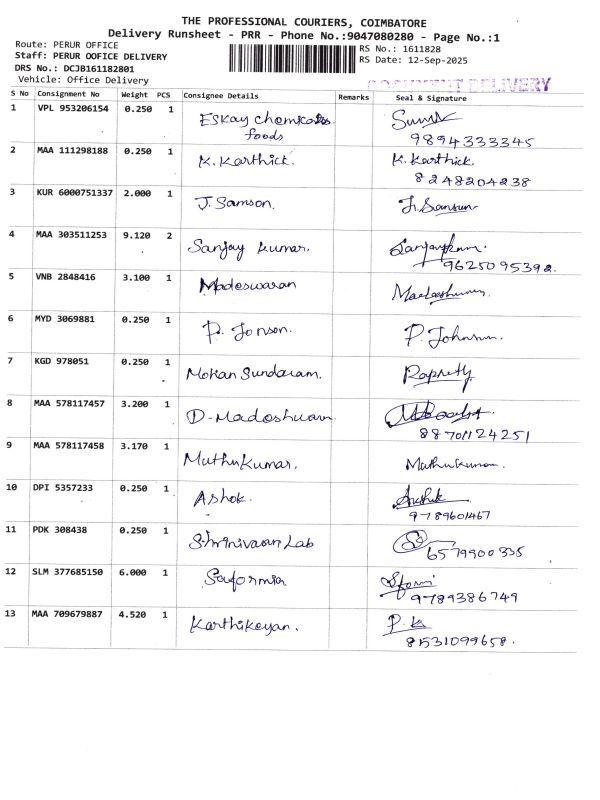 THE PROFESSIONAL COURIERS, COIMBATORE
Delivery Runsheet - PRR - Phone No.:9047080280 - Page No.:1
Route: PERUR OFFICE
Staff: PERUR OOFICE DELIVERY
DRS No.: DCJB161182801
Vehicle: Office Delivery
RS No.: 1611828
RS Date: 12-Sep-2025
DELIVERY
S No Consignment No Weight PCS Consignee Details Remarks Seal & Signature
1 VPL 953206154 0.250 1 Eskay chemicals
foods
9894333345
2 MAA 111298188 0.250 1 K. Karthick. K. Karthick
8248204238
3 KUR 6000751337 2.000 1 J. Samson. J. Samson
4 MAA 303511253 9.120 2 Sanjay Kumar. Sanjaykum.
9625095392.
5 VNB 2848416 3.100 1 Madeswaran
6 MYD 3069881 0.250 1 P. Jonson. P. Johnson.
7 KGD 978051 0.250 1 Mohan Sundaram.
8 MAA 578117457 3.200 1 D. Madeshwaran
88701124251
9 MAA 578117458 3.170 1 Muthukumar. Muthukumar.
10 DPI 5357233 0.250 1 Ashok.
9789601467
11 PDK 308438 0.250 1 Shrinivasan Lab
6579900335
12 SLM 377685150 6.000 1
9789386749
13 MAA 709679887 4.520 1 Karthikeyan. P. K
81531099658.